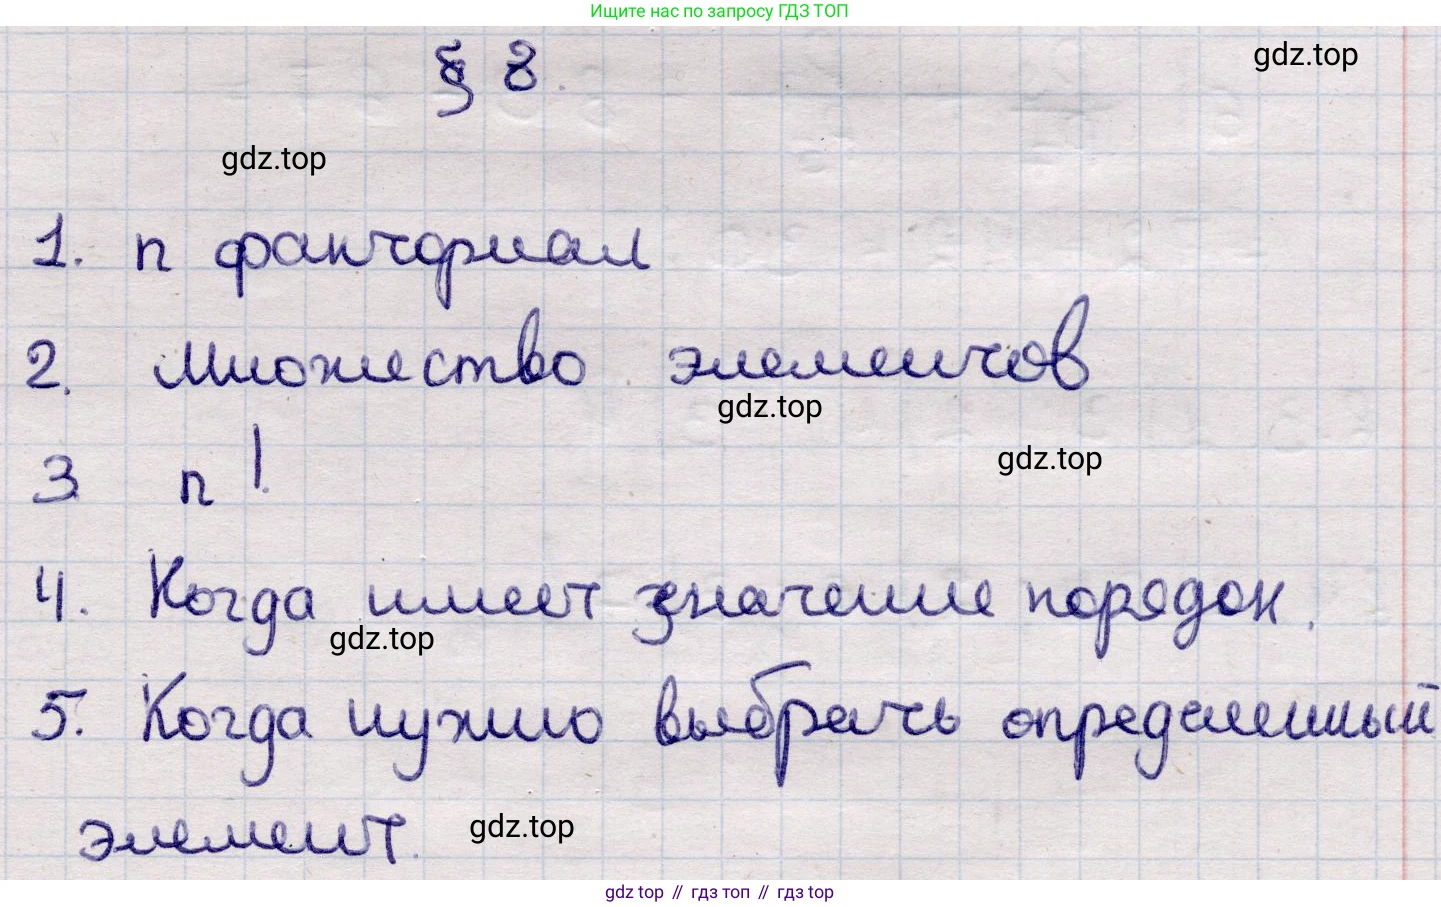 Ищите нас по запросу ГДЗ ТОП
§ 8.
gdz.top
gdz.top
1. n факториал
2. Множество элементов
gdz.top
gdz.top
3 n!
4. Когда имеет значение порядок.
gdz.top
5. Когда нужно выбрать определенный
элемент.
gdz.top
gdz top // гдз топ // гдз top